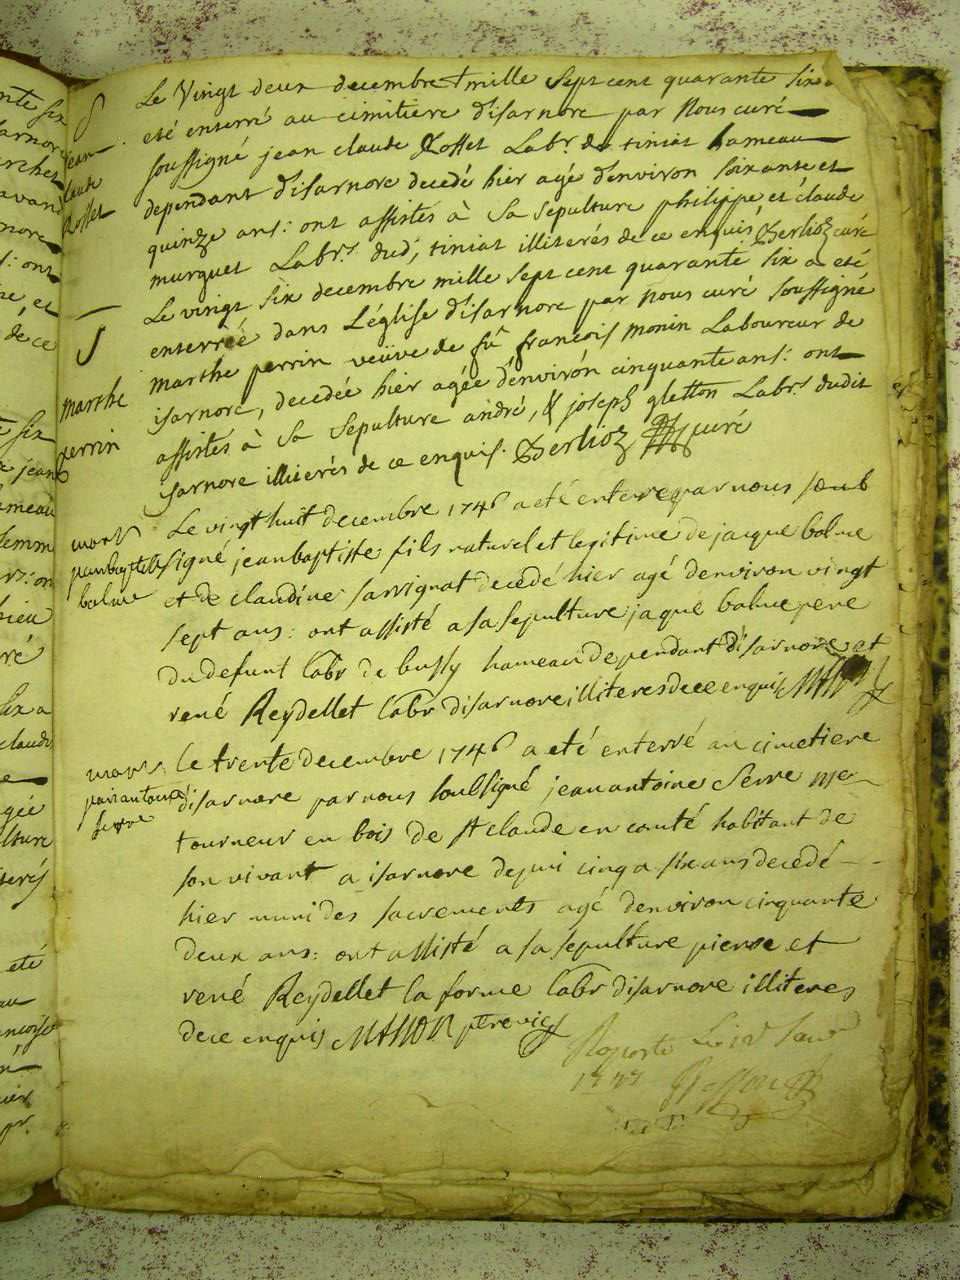 S
jean
claude
Roffet
Le Vingt deux decembre mille sept cent quarante six a
eté enterré au cimitiere disarnore par Nous curé
soussigné jean claude Roffet Labr. de tiniat hameau
dependant disarnore decedé hier agé denviron soixante et
quinze ans: ont assistés à sa sepulture philippe et claude
murguet Labrs. dud, tiniat illiterés de ce enquis Berlioz curé
S
marthe
perrin
Le vingt six decembre mille sept cent quarante six a eté
enterrée dans L'église disarnore par Nous curé soussigné
marthe perrin veüve de fû francois monin Laboureur de
isarnore, decedée hier agée denviron cinquante ans: ont
assistés à sa sepulture andré, & joseph gletton Labrs. dudit
isarnore illiterés de ce enquis. Berlioz curé
mors
jeanbaptiste
balme
Le vingt huit decembre 1746 a eté enterré par nous soub
signé jean baptiste fils naturel et legitime de jacque balme
et de claudine sarvignat decedé hier agé denviron vingt
sept ans: ont assisté a sa sepulture jaque balme pere
du defunt labr de bussy hameau dependant disarnore et
rené Reydellet labr disarnore illiteres dece enquis
mors
jean antoine
serre
Le trente decembre 1746 a eté enterré au cimetiere
disarnore par nous soubsigné jean antoine Serre me
tourneur en bois de st claude en comté habitant de
son vivant a isarnore depuis cinq a six ans decedé
hier muni des sacrements agé denviron cinquante
deux ans: ont assisté a sa sepulture pierre et
rené Reydellet la forme labr disarnore illiteres
dece enquis MASSON ptre vic
Raporté Le 12
1747